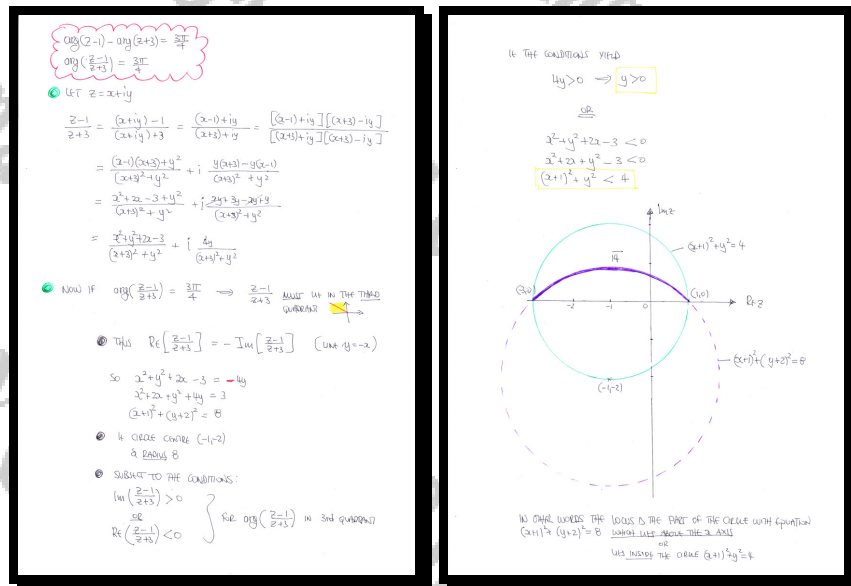 arg(z-1) - arg(z+3) = 3π/4
arg((z-1)/(z+3)) = 3π/4
LET z = x+iy
(z-1)/(z+3) = ((x+iy)-1)/((x+iy)+3) = ((x-1)+iy)/((x+3)+iy) = [(x-1)+iy][(x+3)-iy]/[(x+3)+iy][(x+3)-iy]
= ((x-1)(x+3)+y²)/((x+3)²+y²) + i (y(x+3)-y(x-1))/((x+3)²+y²)
= (x²+2x-3+y²)/((x+3)²+y²) + i (xy+3y-xy+y)/((x+3)²+y²)
= (x²+y²+2x-3)/((x+3)²+y²) + i 4y/((x+3)²+y²)
NOW IF arg((z-1)/(z+3)) = 3π/4 ⇒ (z-1)/(z+3) MUST LIE IN THE THIRD
QUADRANT
THUS Re[(z-1)/(z+3)] = - Im[(z-1)/(z+3)] (LINE y=-x)
SO x²+y²+2x-3 = -4y
x²+2x+y²+4y = 3
(x+1)²+(y+2)² = 8
IE CIRCLE CENTRE (-1,-2)
& RADIUS 8
SUBJECT TO THE CONDITIONS:
Im((z-1)/(z+3)) > 0
OR
Re((z-1)/(z+3)) < 0
FOR arg((z-1)/(z+3)) IN 3rd QUADRANT
IE THE CONDITIONS YIELD
4y>0 ⇒ y>0
OR
x²+y²+2x-3 < 0
x²+2x+y²-3 < 0
(x+1)²+y² < 4
Im z
(x+1)²+y²=4
(-3,0)
(1,0)
-2 -1 0
Re z
(x+1)²+(y+2)²=8
(-1,-2)
IN OTHER WORDS THE LOCUS IS THE PART OF THE CIRCLE WITH EQUATION
(x+1)²+(y+2)²=8 WHICH LIES ABOVE THE x AXIS
OR
LIES INSIDE THE CIRCLE (x+1)²+y²=4